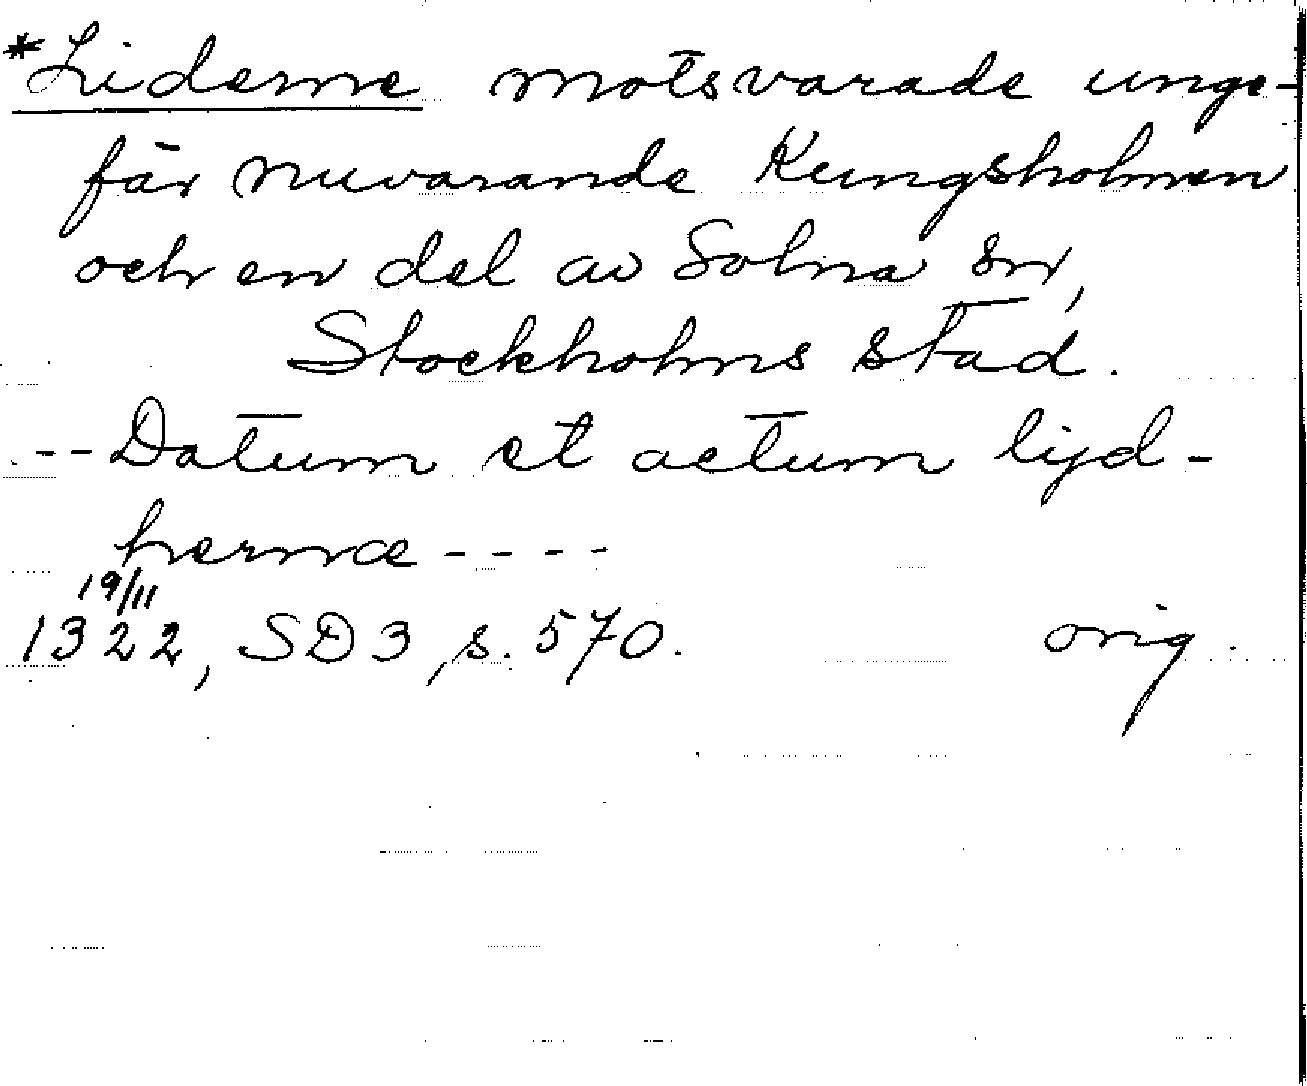 *Liderne motsvarade unge-
fär nuvarande Kungsholmen
och en del av Solna sn,
Stockholms stad.
-- Datum et actum lijd-
hernæ ----
19/11
1322, SD 3, s. 570. orig.